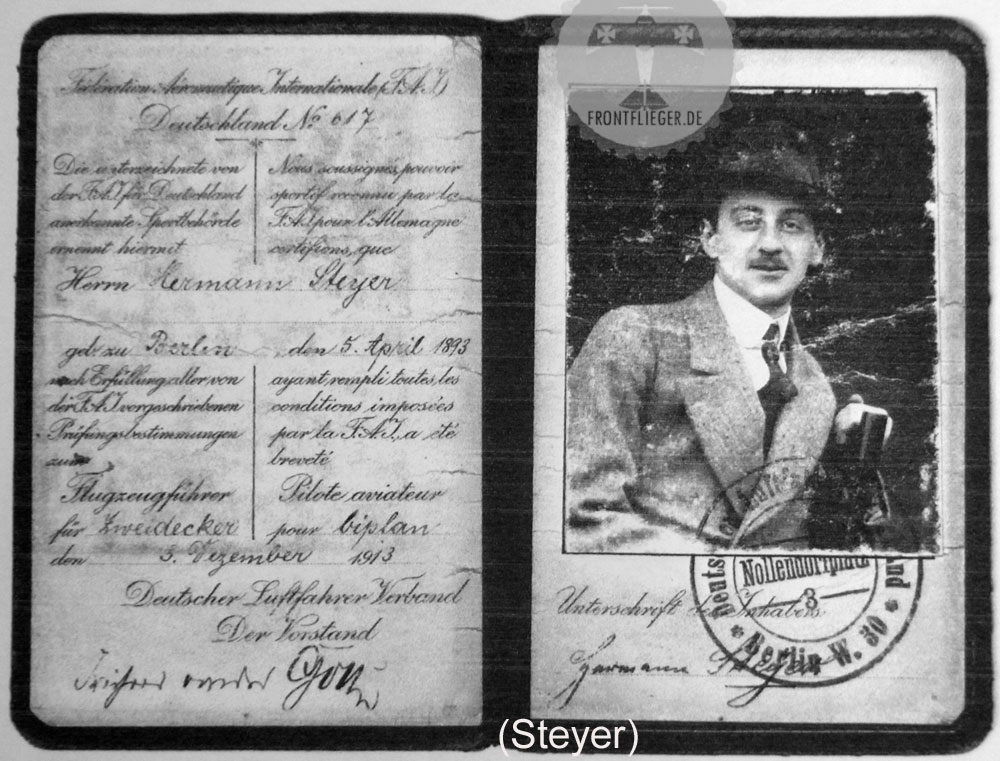 Fédération Aéronautique Internationale (F.A.I.)
Deutschland No 617
Die unterzeichnete von
der F.A.I. für Deutschland
anerkannte Sportbehörde
ernennt hiermit
Nous soussignés, pouvoir
sportif reconnu par la
F.A.I. pour l'Allemagne
certifions, que
Herrn Hermann Steyer
geb. zu Berlin den 5. April 1893
nach Erfüllung aller von
der F.A.I. vorgeschriebenen
Prüfungsbestimmungen
zum
Flugzeugführer
für Zweidecker
ayant rempli toutes les
conditions imposées
par la F.A.I., a été
breveté
Pilote aviateur
pour biplan
den 3. Dezember 1913
Deutscher Luftfahrer Verband
Der Vorstand
FRONTFLIEGER.DE
Nollendorfplatz
3
Berlin W. 30
Unterschrift des Inhabers
Hermann Steyer
(Steyer)